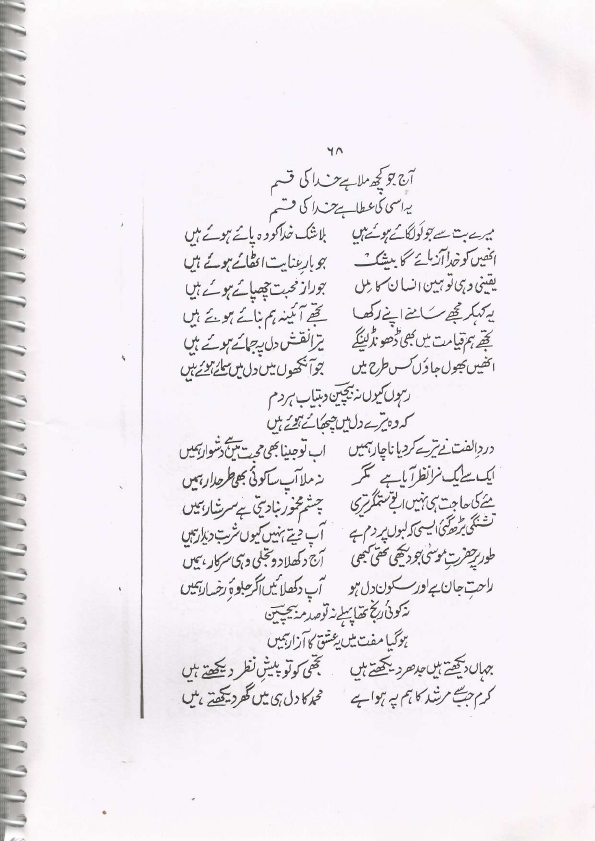 ۶۸
آج جو کچھ ملا ہے خدا کی قسم
یہ اسی کی عطا ہے خدا کی قسم
میرے بت سے جو لَو لگائے ہوئے ہیں بلا شک خدا کو وہ پائے ہوئے ہیں
انھیں کو خدا آزمائے گا بیشک جو بارِ عنایت اٹھائے ہوئے ہیں
یقینی وہی تو ہین انسان کامل جو راز محبت چھپائے ہوئے ہیں
یہ کہکر مجھے سامنے اپنے رکھا تجھے آئینہ ہم بنائے ہوئے ہیں
تجھے ہم قیامت میں بھی ڈھونڈ لینگے ترا نقش دل پہ جمائے ہوئے ہیں
انھیں بھول جاؤں کس طرح میں جو آنکھوں میں دل میں سمائے ہوئے ہیں
رہوں کیوں نہ بیچین و بیتاب ہر دم
کہ وہ تیرے دل میں چھپائے ہوئے ہیں
درد الفت نے ترے کر دیا ناچار ہمیں اب تو جینا بھی محبت میں ہے دشوار ہمیں
ایک سے ایک نرا نظر آیا ہے مگر نہ ملا آپ سا کوئی بھی طرحدار ہمیں
مئے کی حاجت ہی نہیں اب تو ستمگر تری چشم مخمور بنا دیتی ہے سرشار ہمیں
تشنگی بڑھ گئی ایسی کہ لبوں پر دم ہے آپ دیتے نہیں کیوں شربت دیدار ہمیں
طور پر حضرت موسیٰ جو دیکھی تھی کبھی آج دکھلا دو تجلی وہی سرکار ہمیں
راحتِ جان ہے اور سکون دل ہو آپ دکھلائیں اگر جلوۂ رخسار ہمیں
نہ کوئی رنج تھا پہلے نہ تو صدمہ بیچین
ہو گیا مفت میں یہ عشق کا آزار ہمیں
جہاں دیکھتے ہیں جدھر دیکھتے ہیں تجھی کو تو پیش نظر دیکھتے ہیں
کرم جب سے مرشد کا ہم پہ ہوا ہے محمد کا دل ہی میں گھر دیکھتے ہیں